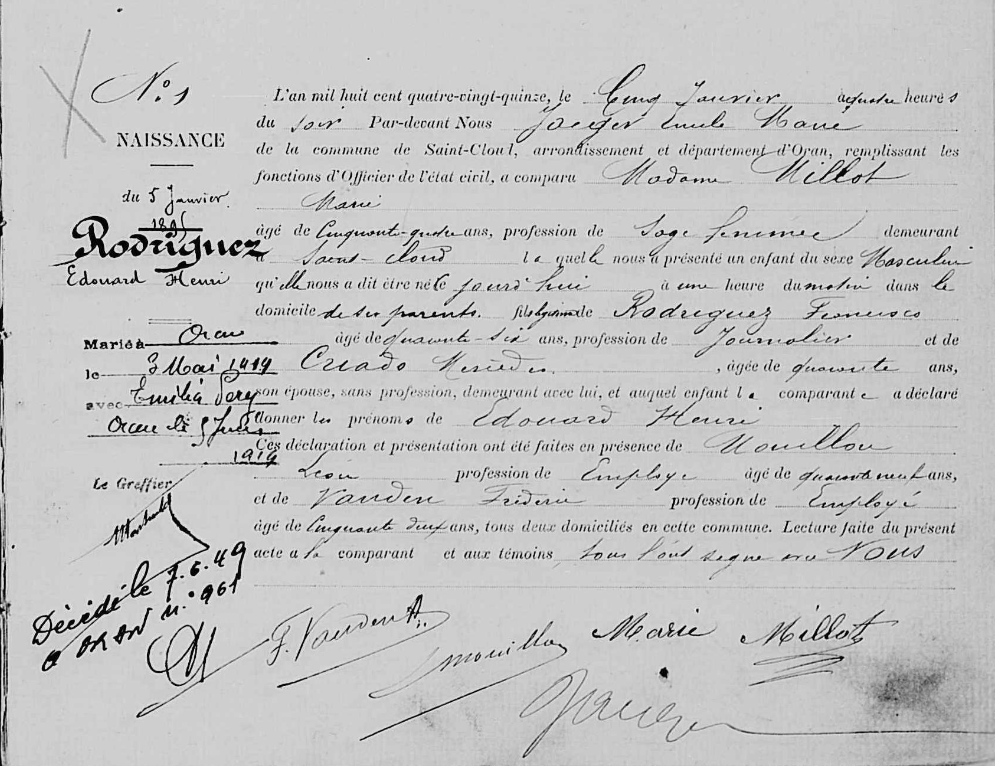 N° 1
NAISSANCE
du 5 Janvier
1895
Rodriguez
Edouard Henri
Marié à Oran
le 3 Mai 1919
avec Emilia
Oran le 5
1919
Le Greffier
Décédé le 7.6.49
a ORAN n° 961
L'an mil huit cent quatre-vingt-quinze, le Cinq Janvier à quatre heures
du soir Par-devant Nous Jaeger Emile Marie
de la commune de Saint-Cloud, arrondissement et département d'Oran, remplissant les
fonctions d'Officier de l'état civil, a comparu Madame Millot
Marie
âgé de Cinquante-quatre ans, profession de Sage femme demeurant
à Saint-Cloud laquelle nous a présenté un enfant du sexe Masculin
qu'elle nous a dit être né ce jourd'hui à une heure du matin dans le
domicile de ses parents. fils légitime de Rodriguez Francisco
âgé de quarante-six ans, profession de Journalier et de
Criado Mercedes, âgée de quarante ans,
son épouse, sans profession, demeurant avec lui, et auquel enfant la comparante a déclaré
donner les prénoms de Edouard Henri
Ces déclaration et présentation ont été faites en présence de Mouillon
Léon profession de Employé âgé de quarante neuf ans,
et de Vanden Frédéric profession de Employé
âgé de Cinquante deux ans, tous deux domiciliés en cette commune. Lecture faite du présent
acte a la comparant et aux témoins, tous l'ont signé avec Nous
F. Vanden Mouillon Marie Millot
Jaeger